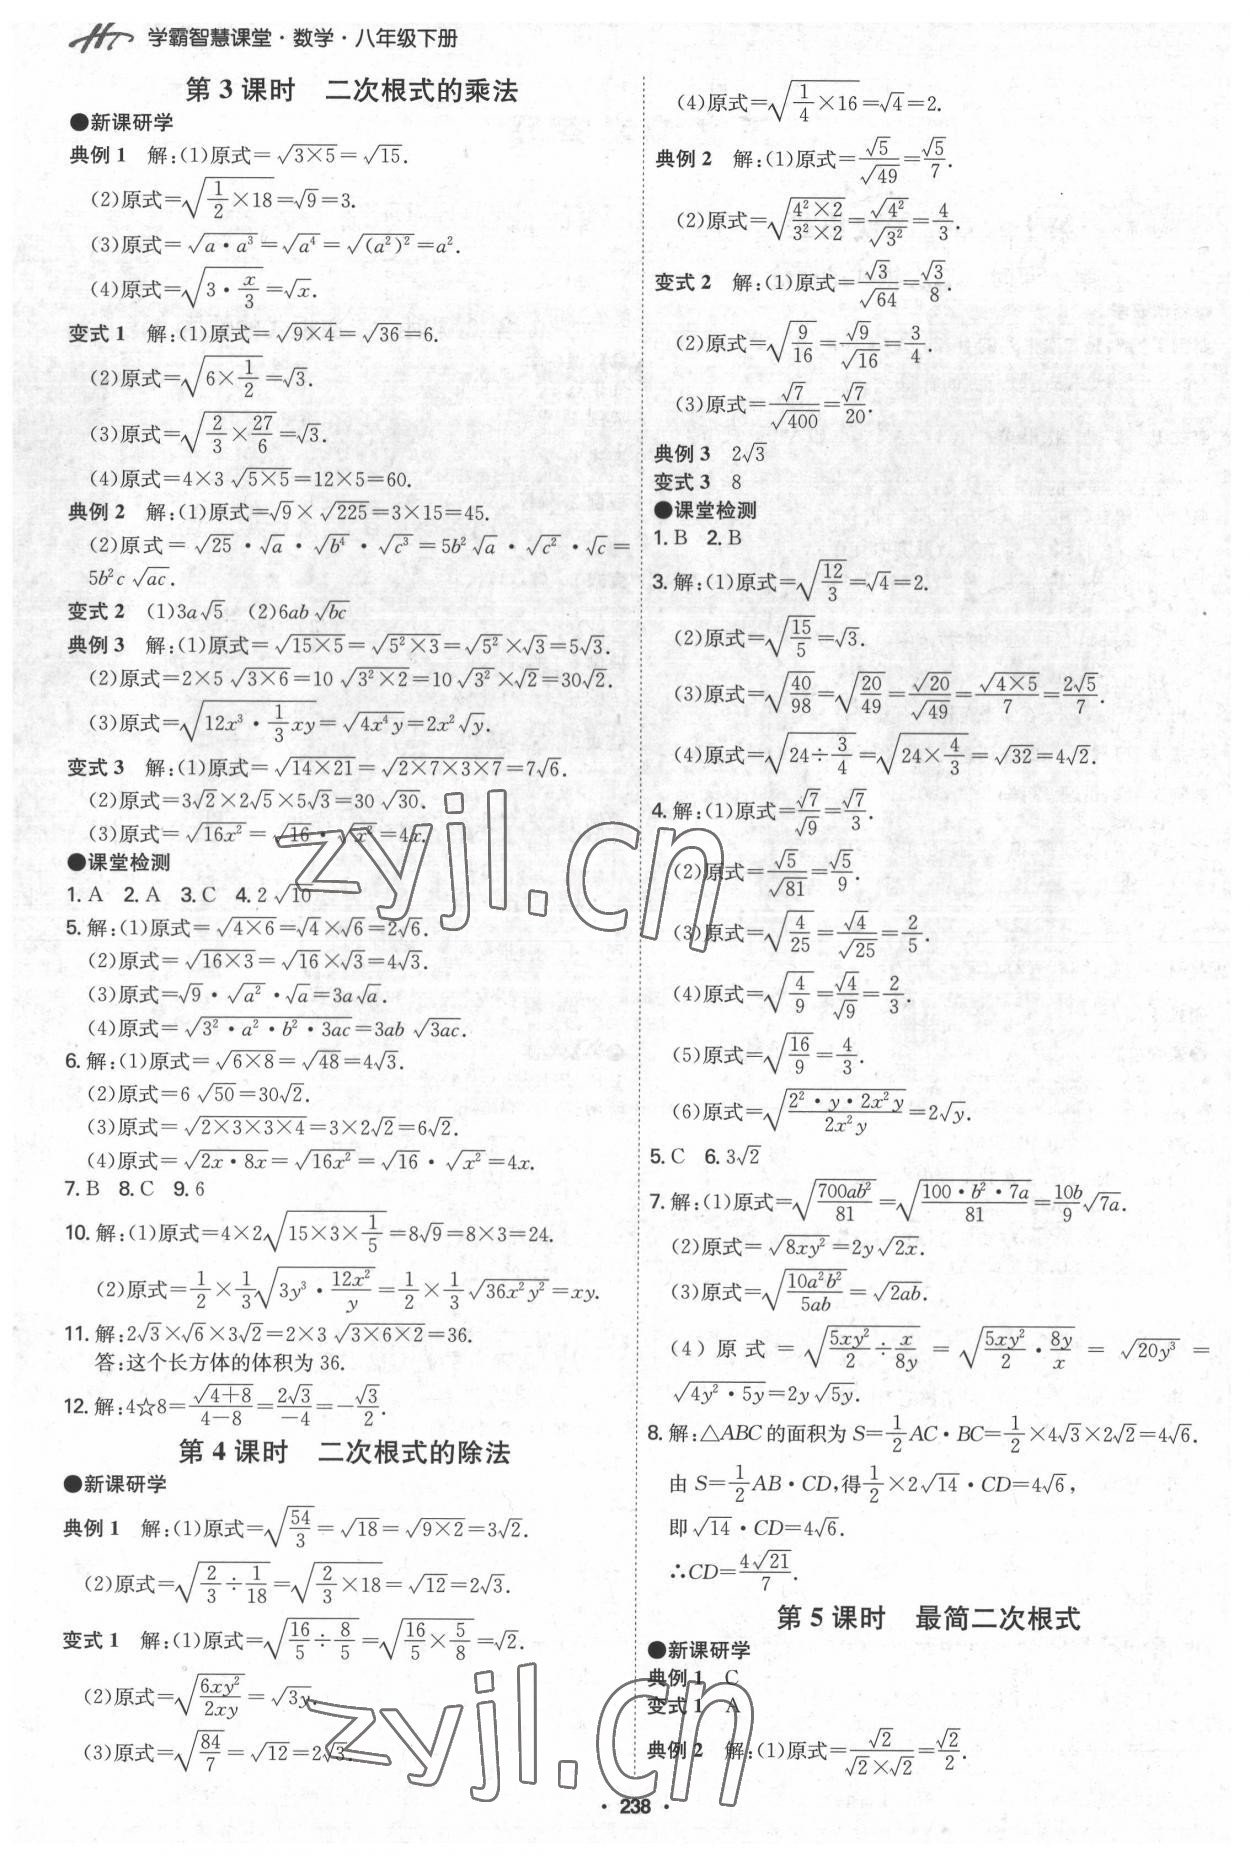 学霸智慧课堂·数学·八年级下册
第 3 课时　二次根式的乘法
●新课研学
典例 1　解:(1)原式=√(3×5)=√15.
(2)原式=√(1/2×18)=√9=3.
(3)原式=√(a·a³)=√(a⁴)=√((a²)²)=a².
(4)原式=√(3·x/3)=√x.
变式 1　解:(1)原式=√(9×4)=√36=6.
(2)原式=√(6×1/2)=√3.
(3)原式=√(2/3×27/6)=√3.
(4)原式=4×3√(5×5)=12×5=60.
典例 2　解:(1)原式=√9×√225=3×15=45.
(2)原式=√25·√a·√(b⁴)·√(c³)=5b²√a·√(c²)·√c=
5b²c√(ac).
变式 2　(1)3a√5　(2)6ab√(bc)
典例 3　解:(1)原式=√(15×5)=√(5²×3)=√(5²)×√3=5√3.
(2)原式=2×5√(3×6)=10√(3²×2)=10√(3²)×√2=30√2.
(3)原式=√(12x³·1/3xy)=√(4x⁴y)=2x²√y.
变式 3　解:(1)原式=√(14×21)=√(2×7×3×7)=7√6.
(2)原式=3√2×2√5×5√3=30√30.
(3)原式=√(16x²)=√16·√(x²)=4x.
●课堂检测
1. A　2. A　3. C　4. 2√10
5. 解:(1)原式=√(4×6)=√4×√6=2√6.
(2)原式=√(16×3)=√16×√3=4√3.
(3)原式=√9·√(a²)·√a=3a√a.
(4)原式=√(3²·a²·b²·3ac)=3ab√(3ac).
6. 解:(1)原式=√(6×8)=√48=4√3.
(2)原式=6√50=30√2.
(3)原式=√(2×3×3×4)=3×2√2=6√2.
(4)原式=√(2x·8x)=√(16x²)=√16·√(x²)=4x.
7. B　8. C　9. 6
10. 解:(1)原式=4×2√(15×3×1/5)=8√9=8×3=24.
(2)原式=1/2×1/3√(3y³·12x²/y)=1/2×1/3√(36x²y²)=xy.
11. 解:2√3×√6×3√2=2×3√(3×6×2)=36.
答:这个长方体的体积为 36.
12. 解:4☆8=√(4+8)/(4−8)=2√3/−4=−√3/2.
第 4 课时　二次根式的除法
●新课研学
典例 1　解:(1)原式=√(54/3)=√18=√(9×2)=3√2.
(2)原式=√(2/3÷1/18)=√(2/3×18)=√12=2√3.
变式 1　解:(1)原式=√(16/5÷8/5)=√(16/5×5/8)=√2.
(2)原式=√(6xy²/2xy)=√(3y).
(3)原式=√(84/7)=√12=2√3.
(4)原式=√(1/4×16)=√4=2.
典例 2　解:(1)原式=√5/√49=√5/7.
(2)原式=√(4²×2/3²×2)=√(4²)/√(3²)=4/3.
变式 2　解:(1)原式=√3/√64=√3/8.
(2)原式=√(9/16)=√9/√16=3/4.
(3)原式=√7/√400=√7/20.
典例 3　2√3
变式 3　8
●课堂检测
1. B　2. B
3. 解:(1)原式=√(12/3)=√4=2.
(2)原式=√(15/5)=√3.
(3)原式=√(40/98)=√(20/49)=√20/√49=√(4×5)/7=2√5/7.
(4)原式=√(24÷3/4)=√(24×4/3)=√32=4√2.
4. 解:(1)原式=√7/√9=√7/3.
(2)原式=√5/√81=√5/9.
(3)原式=√(4/25)=√4/√25=2/5.
(4)原式=√(4/9)=√4/√9=2/3.
(5)原式=√(16/9)=4/3.
(6)原式=√(2²·y·2x²y/2x²y)=2√y.
5. C　6. 3√2
7. 解:(1)原式=√(700ab²/81)=√(100·b²·7a/81)=10b/9√(7a).
(2)原式=√(8xy²)=2y√(2x).
(3)原式=√(10a²b²/5ab)=√(2ab).
(4)原式=√(5xy²/2÷x/8y)=√(5xy²/2·8y/x)=√(20y³)=
√(4y²·5y)=2y√(5y).
8. 解:△ABC 的面积为 S=1/2AC·BC=1/2×4√3×2√2=4√6.
由 S=1/2AB·CD,得1/2×2√14·CD=4√6,
即√14·CD=4√6.
∴CD=4√21/7.
第 5 课时　最简二次根式
●新课研学
典例 1　C
变式 1　A
典例 2　解:(1)原式=√2/(√2×√2)=√2/2.
·238·
zyjl.cn
zyjl.cn